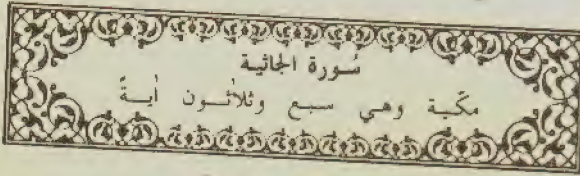 سُورة الجاثية
مكّية وهي سبع وثلاثُــون أيــةً